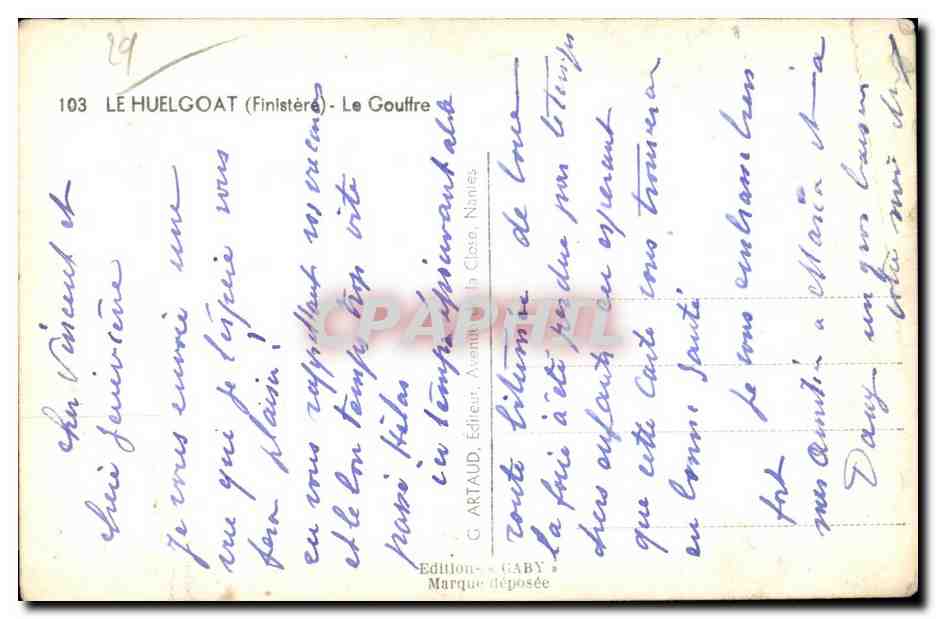 29
103 LE HUELGOAT (Finistère) - Le Gouffre
cher Vincent et
chère Geneviève
Je vous envoie une
vue qui je l'éspère vous
fera plaisir
en vous rappelant vos vacances
et le bon temps trop vite
passé Hélas
ici temps épouvantable
G. ARTAUD, Editeur, Avenue de la Close, Nantes
toute de
la été perdue pour
chers enfants en esperant
que cette carte vous trouvera
en bonne santé
Je vous embrasse bien
fort
mes amitiés a Maria et a
Dany un gros baiser
votre
Edition « GABY »
Marque déposée
CPAPHIL